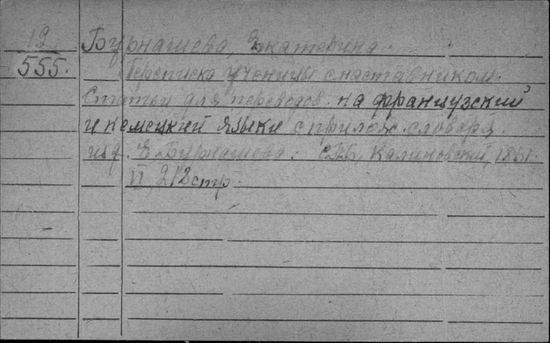 19
555.
Бурнашева, Екатерина.
Переписка ученицы с наставником.
Статьи для переводов на французский
и немецкий языки с прилож. словаря
изд. Е. Бурнашева. СПБ, Калиновский, 1851.
II, 212 стр.